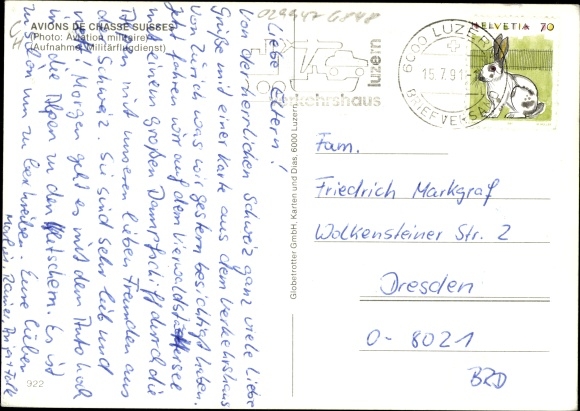 AVIONS DE CHASSE SUISSES
(Photo: Aviation militaire)
(Aufnahme: Militärflugdienst)
Liebe Eltern!
Von der herrlichen Schweiz ganz viele Liebe
Grüße mit einer Karte aus dem Verkehrshaus
von Zürich was wir gestern besichtigt haben.
Ich fuhren wir auf dem Vierwaldstättersee
mit einem großen Dampfschiff durch die
Alpen mit unseren lieben Freunden aus
der Schweiz. Sie sind sehr lieb und
Morgen geht es mit dem Auto hoch
in die Alpen zu den Gletschern. Es ist
schön um zu beschreiben. Eure lieben
922
Globetrotter GmbH, Karten und Dias, 6000 Luzern
029947 6848
verkehrshaus
luzern
6000 LUZERN
15.7.91
BRIEFVERSAND
HELVETIA 70
Fam.
Friedrich Markgraf
Wolkensteiner Str. 2
Dresden
O-8021
BRD